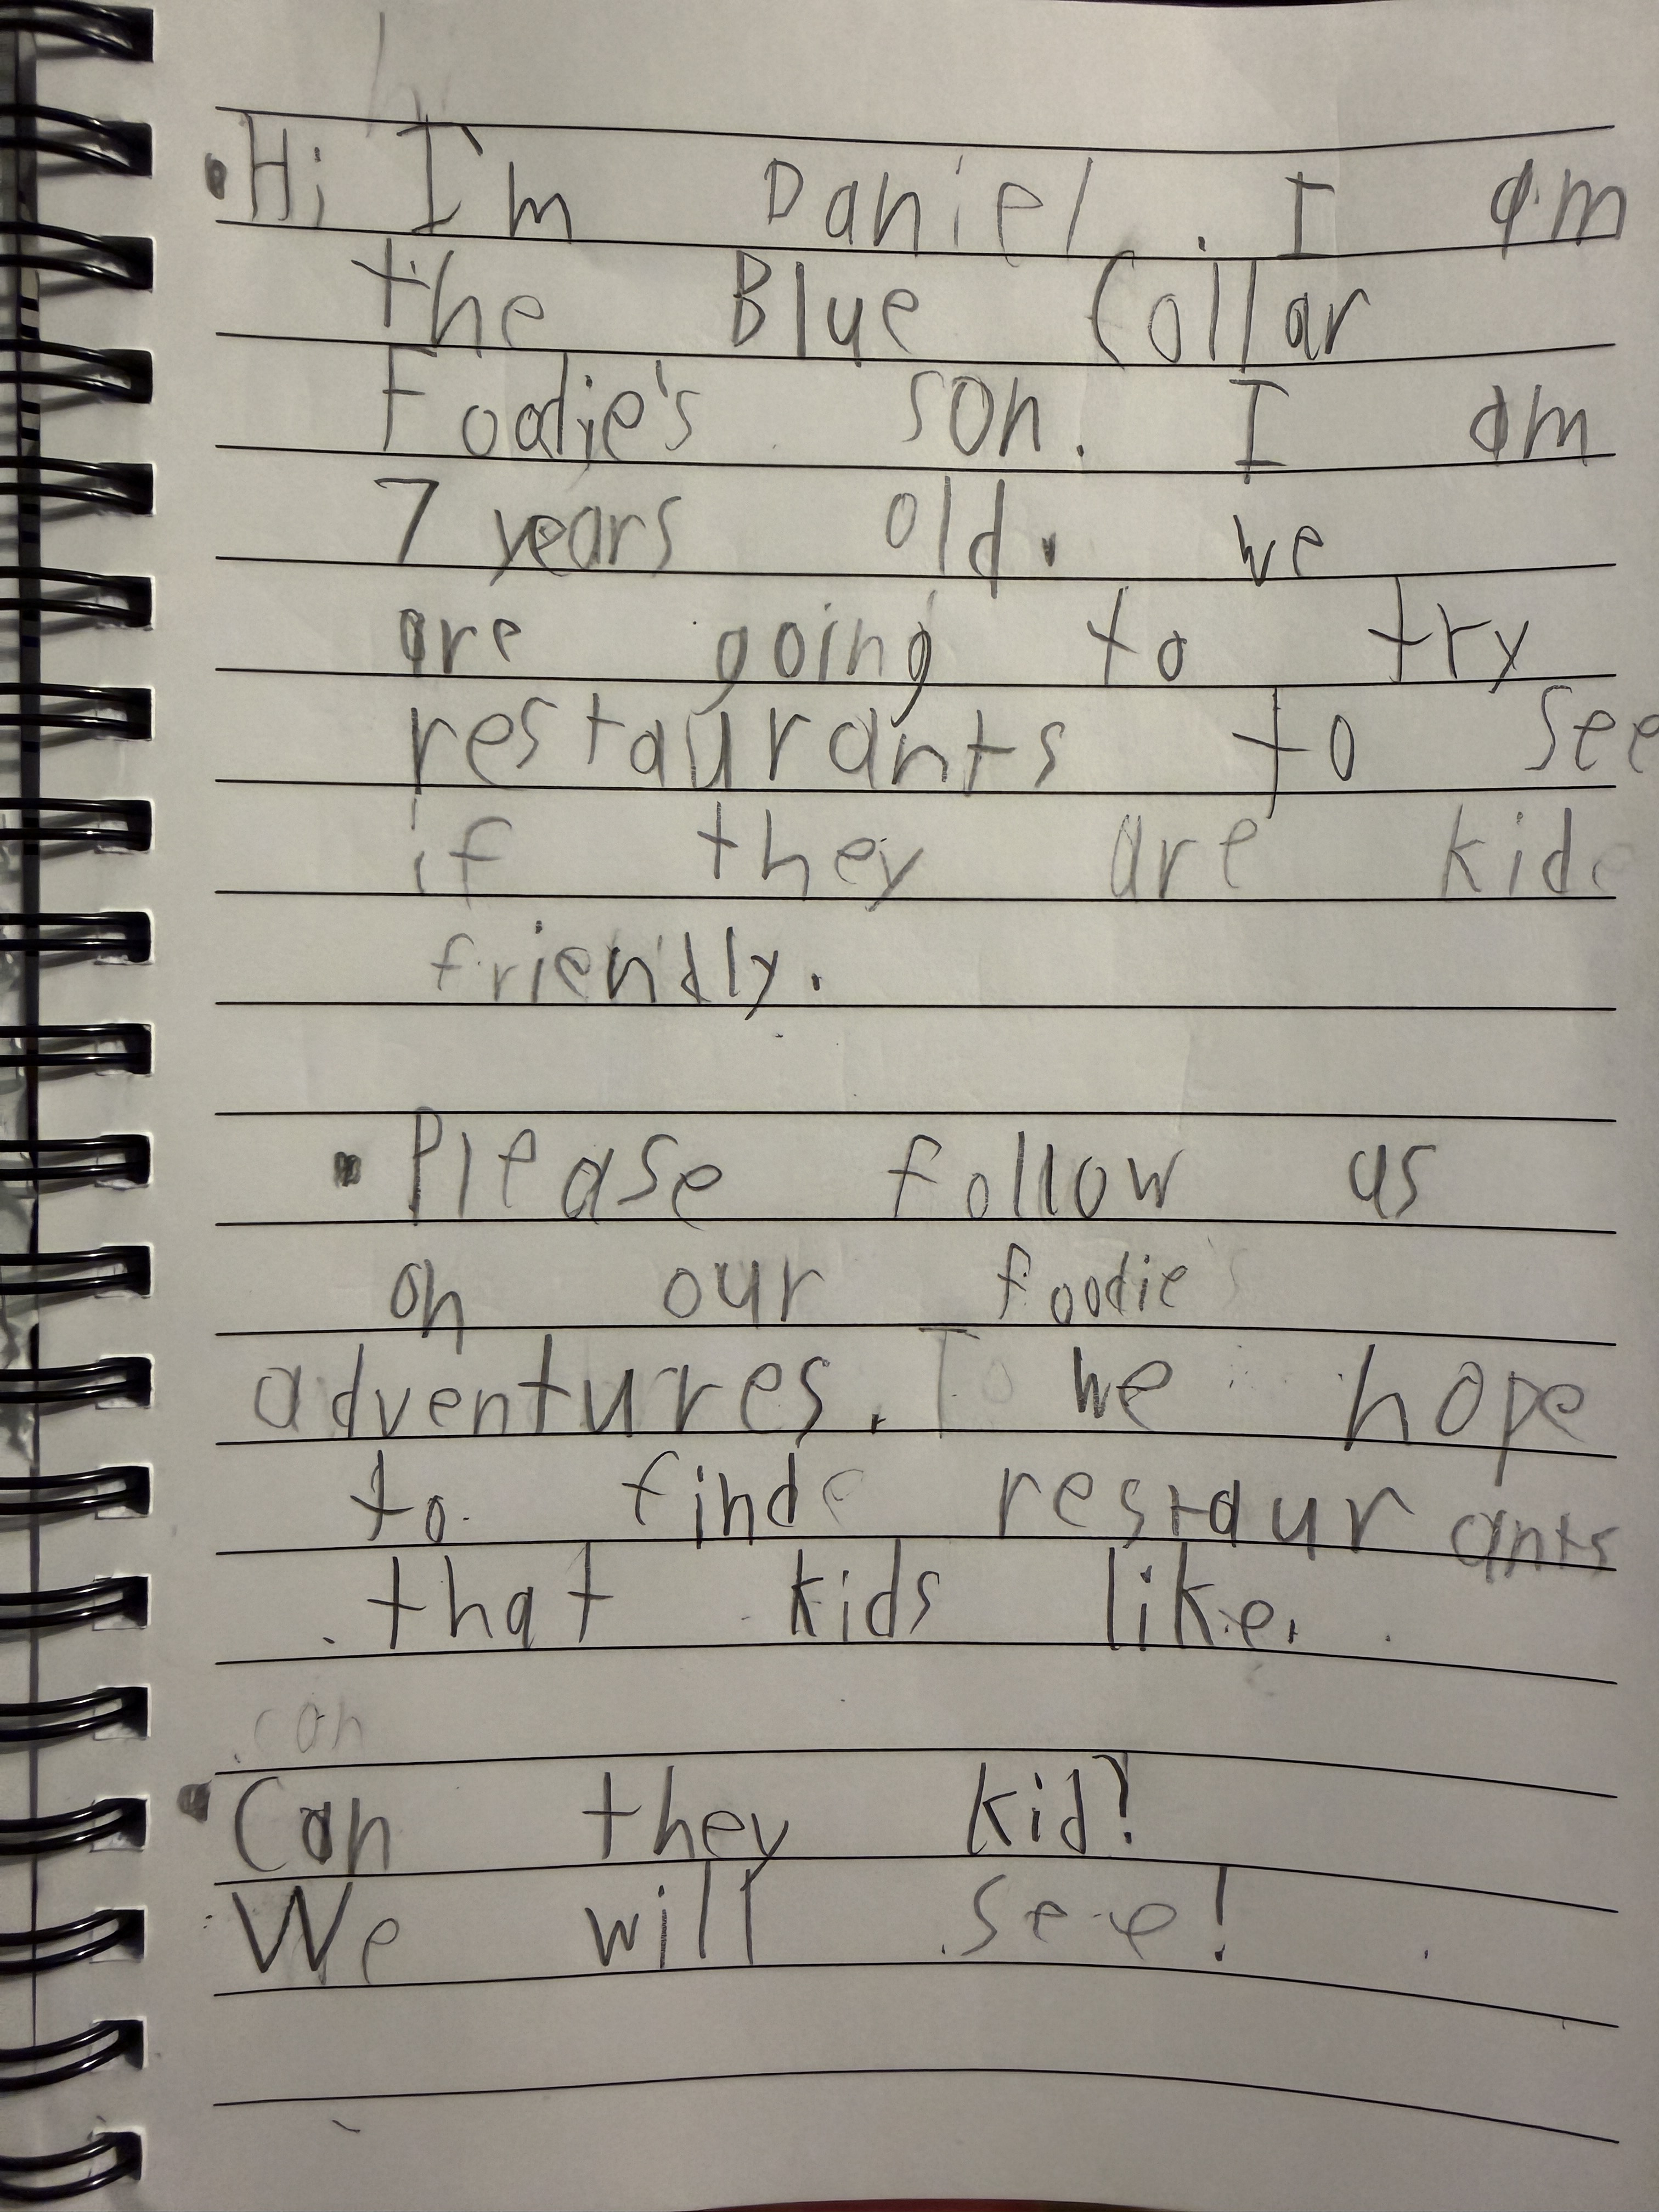 • Hi I'm Daniel. I am
the Blue Collar
Foodie's son. I am
7 years old. we
are going to try
restaurants to see
if they are kid
friendly.
• Please follow us
on our foodie
adventures. we hope
to find restaurants
that kids like.
can
• Can they kid?
We will see!